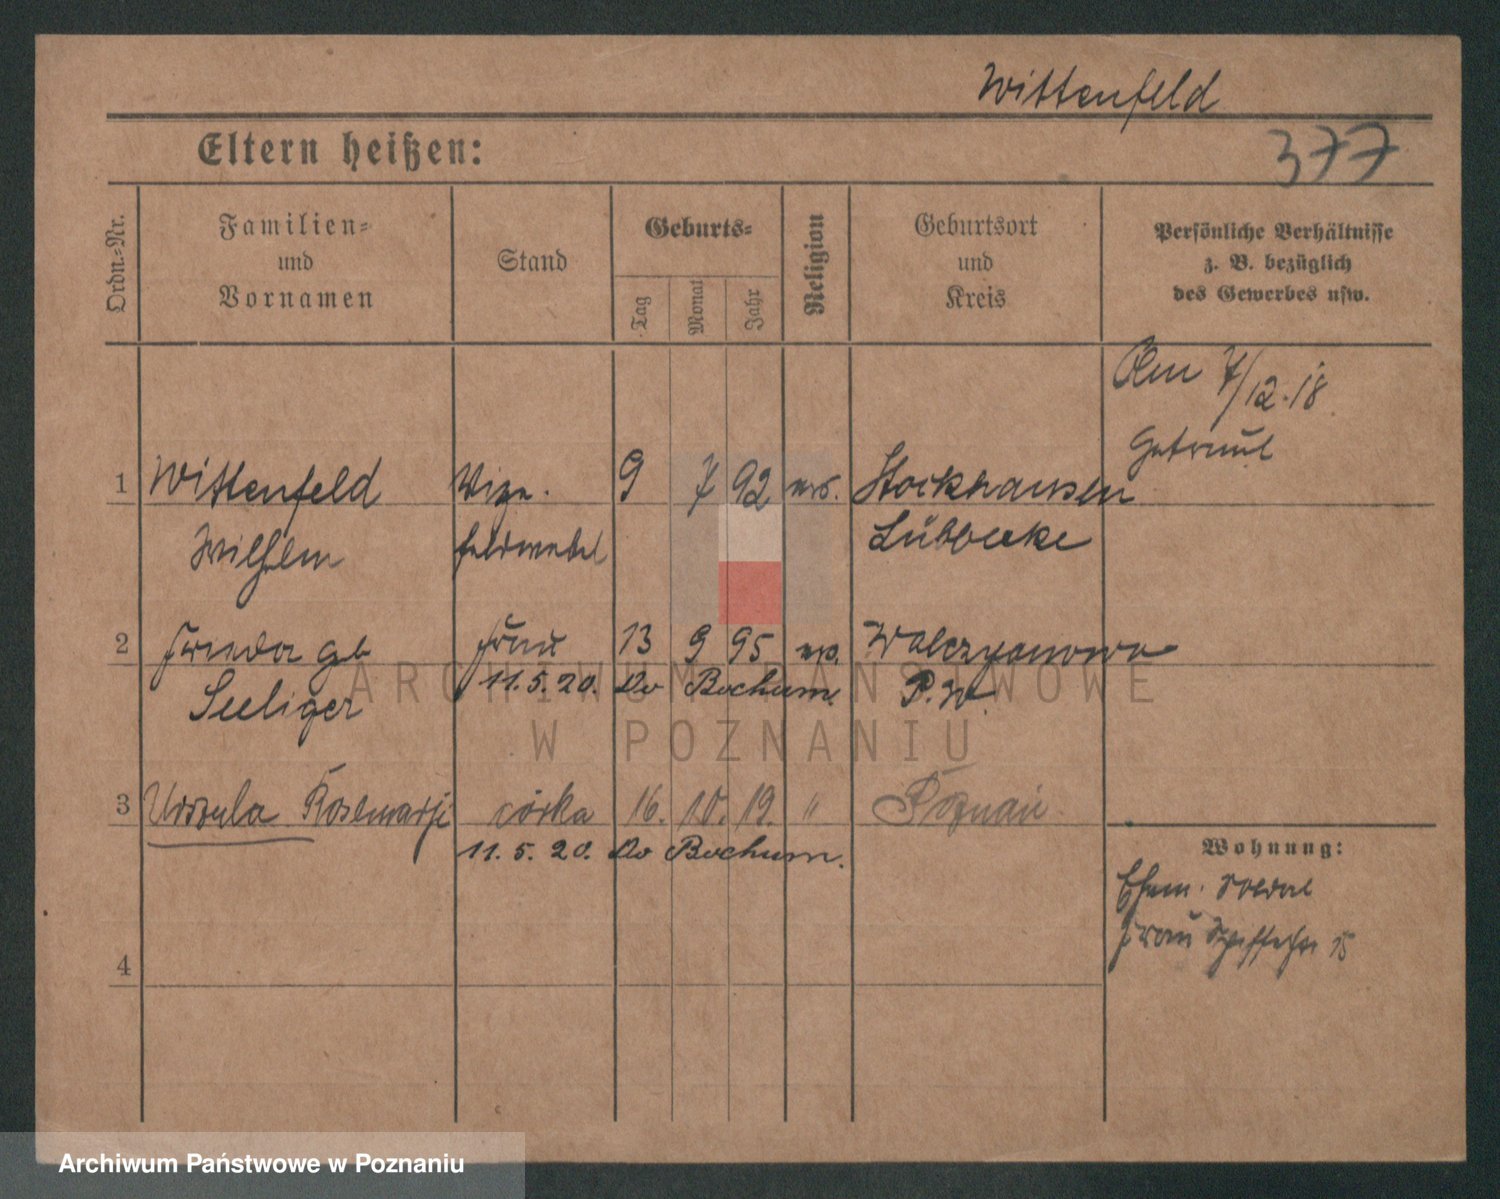 Wittenfeld
Eltern heißen:
377
Ordn.=Nr.
Familien=
und
Vornamen
Stand
Geburts=
Tag
Monat
Jahr
Religion
Geburtsort
und
Kreis
Persönliche Verhältnisse
z. B. bezüglich
des Gewerbes usw.
Am 7/12.18
Getraut
1 Wittenfeld Vize. 9 7 92 Stockhausen
Wilhelm feldwebel Lübbecke
2 Frieda gb Frau 13 9 95
Seeliger 11.5.20. Do Bochum. P.W.
3 Urszula Rosemarji córka 16. 10. 19. " Poznań
11.5.20. Do Bochum.
Wohnung:
Ehem. Soldat
Frau 15
4
ARCHIWUM PAŃSTWOWE
W POZNANIU
Archiwum Państwowe w Poznaniu